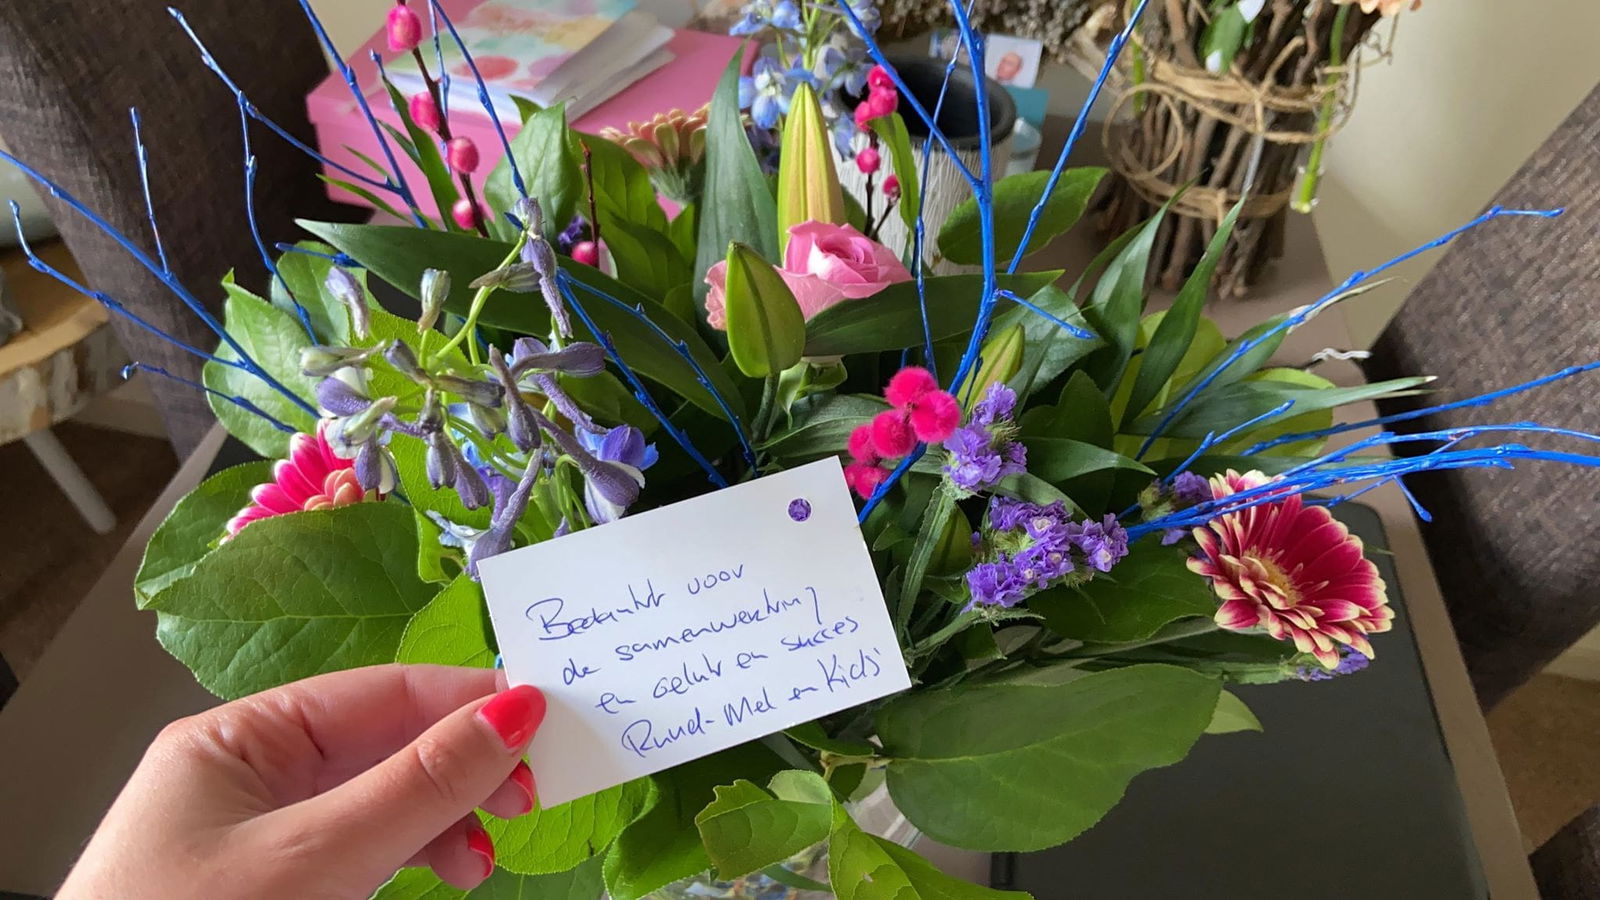 Bedankt voor
de samenwerking
en geluk en succes
Ruud-Mel en Kids